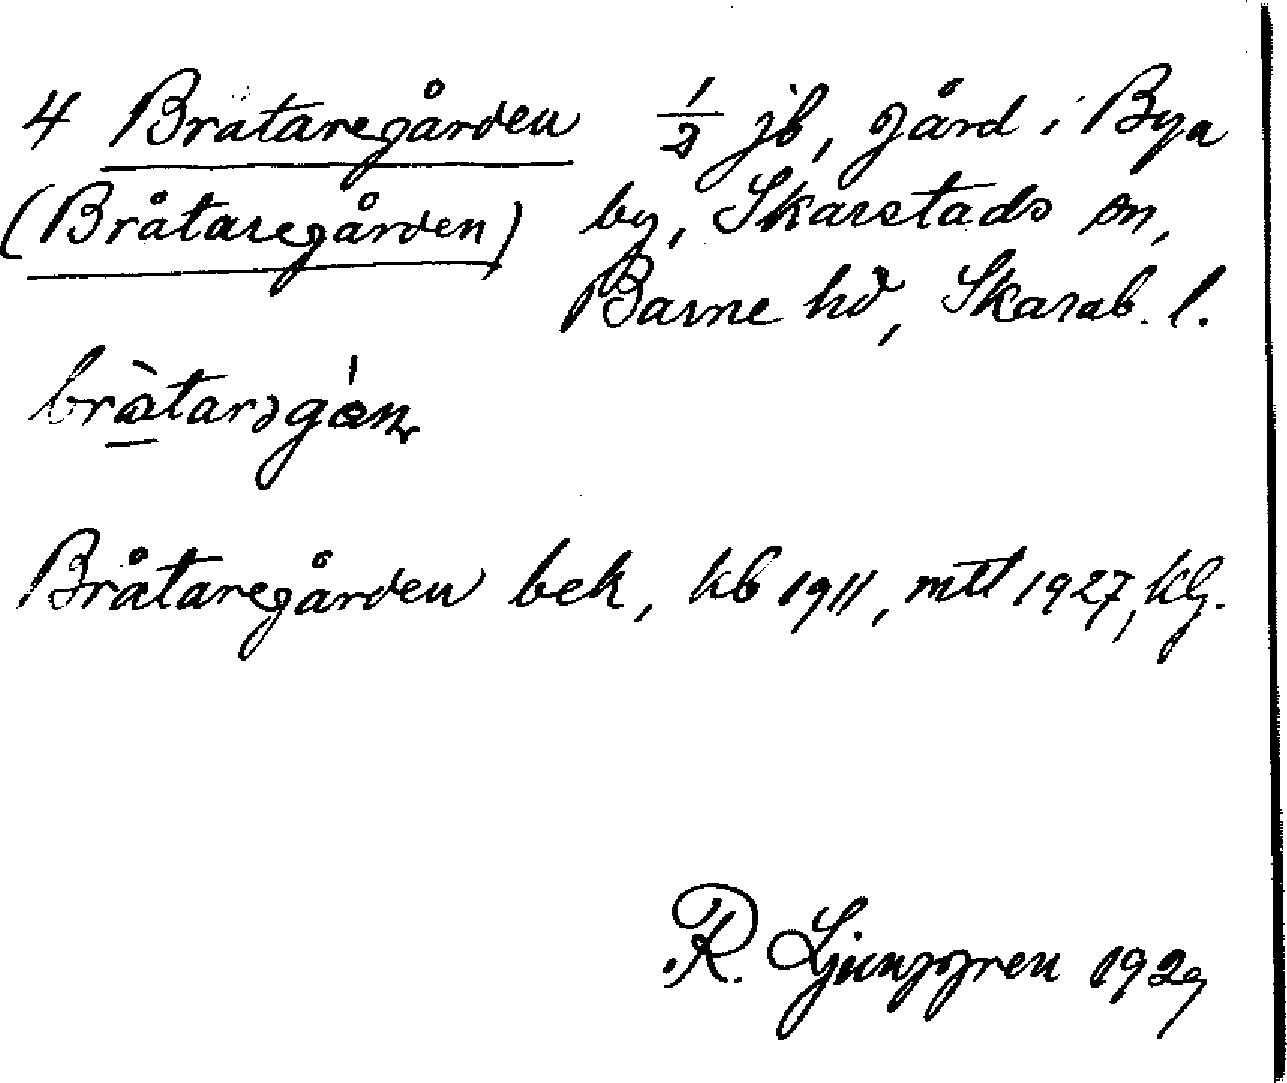 4 Brataregården ½ jb, gård i Bya
(Bråtaregården) by, Skarstads sn,
Barne hd, Skarab. l.
Bråtaregården bek, kb 1911, mtl 1927, kg.
R. Ljunggren 1929